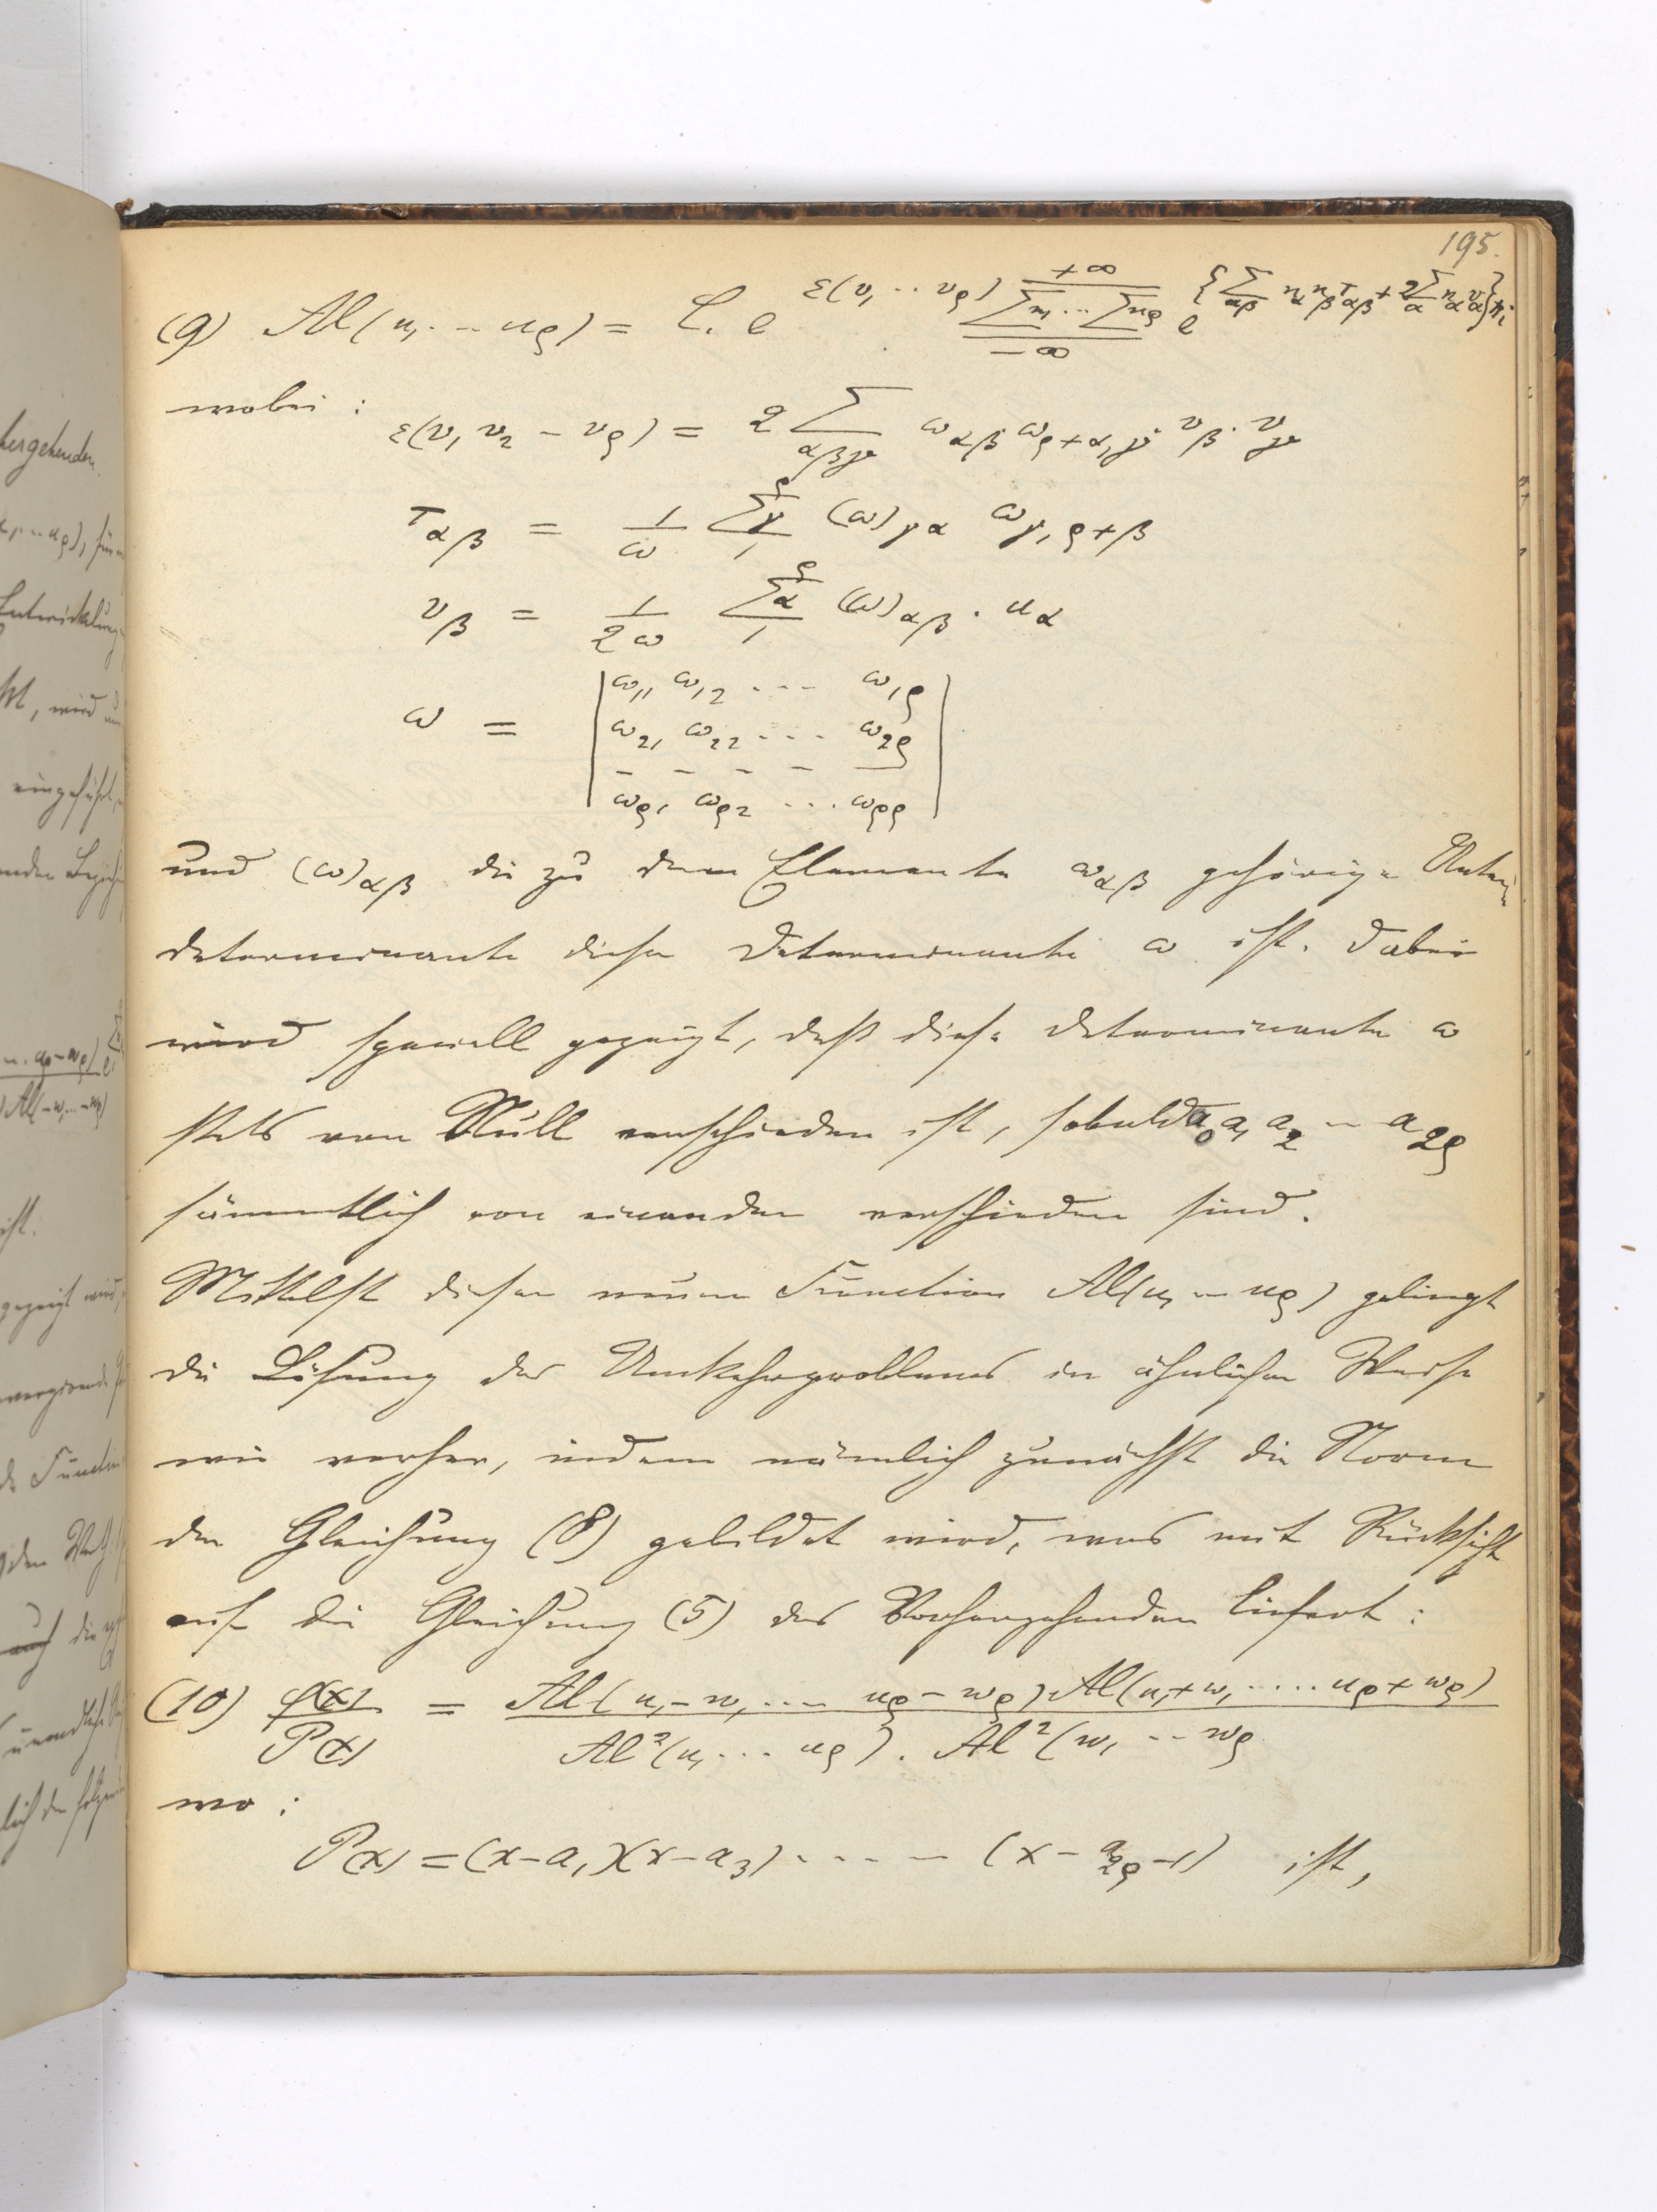 195.
(9) Al(u₁ ... u_ρ) = C. e^{ε(v₁ ... v_ρ)} \sum_{-∞}^{+∞} n₁ ... \sum n_ρ e^{\{\sum_{αβ} n_α n_β τ_{αβ} + 2\sum_α n_α v_α\}πi}
wobei :
ε(v₁ v₂ – v_ρ) = 2 \sum_{αβγ} ω_{αβ} · ω_{ρ+α,γ} · v_β · v_γ
τ_{αβ} = \frac{1}{ω} \sum_1^ρ γ (ω)_{γα} ω_{γ,ρ+β}
v_β = \frac{1}{2ω} \sum_1^ρ α (ω)_{αβ} · u_α
ω = | ω₁₁ ω₁₂ ... ω_{1ρ}
ω₂₁ ω₂₂ ... ω_{2ρ}
– – – – —
ω_{ρ1} ω_{ρ2} ... ω_{ρρ} |
und (ω)_{αβ} die zu dem Elemente ω_{αβ} gehörige Unter-
determinante dieser Determinante ω ist. Dabei
wird speciell gezeigt, daß diese Determinante ω
stets von Null verschieden ist, sobald a₀ a₁ a₂ ... a_{2ρ}
sämmtlich von einander verschieden sind.
Mittelst dieser neuen Function Al(u₁ ... u_ρ) gelingt
die Lösung des Umkehrproblemes in ähnlicher Weise
wie vorher, indem nämlich zunächst die Norm
der Gleichung (8) gebildet wird, was mit Rücksicht
auf die Gleichung (5) des Vorhergehenden liefert :
(10) \frac{φ(x)}{P(x)} = \frac{Al(u₁–w₁ .... u_ρ–w_ρ) Al(u₁+w₁ ..... u_ρ+w_ρ)}{Al²(u₁ ... u_ρ) . Al²(w₁ ... w_ρ}
wo :
P(x) = (x–a₁)(x–a₃) ..... (x–a_{2ρ–1}) ist,